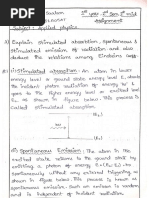 1st year 2nd Sem 1st mid
Assignment
Subject : Applied physics
1) Explain stimulated absorption, spontaneous &
stimulated emission of radiation and also
deduce the relations among Einsteins
(i) Stimulated absorption : An atom in lower
energy level or ground state energy level E1 absorbs
the incident photon radiation of energy hν and
goes to the higher energy level or excited level
E2 as shown in figure below. This process is called
absorption.
hν
(ii) Spontaneous Emission : The atom in the
excited state returns to the ground state by
emitting a photon of energy E = (E2 - E1) = hν
spontaneously without any external triggering as
shown in figure below. This process is known as
spontaneous emission. Such an emission is random
and is independent of incident radiation.